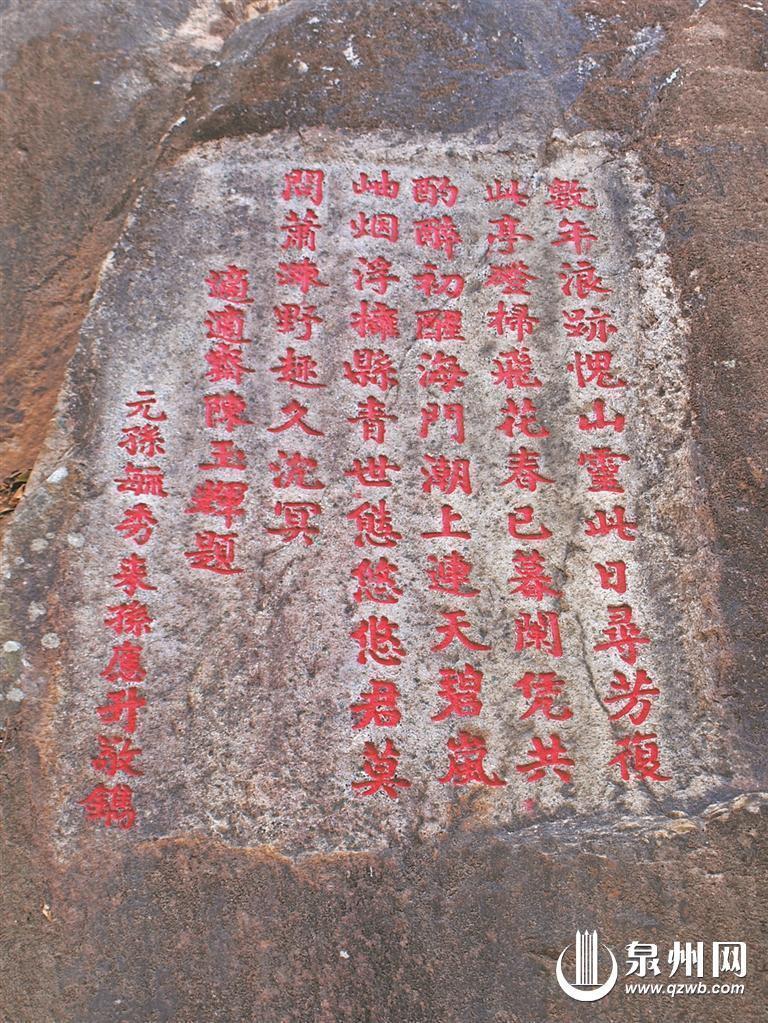 數年浪跡愧山靈此日尋芳復
此亭磴掃飛花春已暮闌凭共
酌醉初醒海門潮上連天碧嵐
岫烟浮擁縣青世態悠悠君莫
問蕭疎野趣久沈冥
適適齋陳玉輝題
元孫毓秀來孫鷹升敬鐫
泉州网
www.qzwb.com